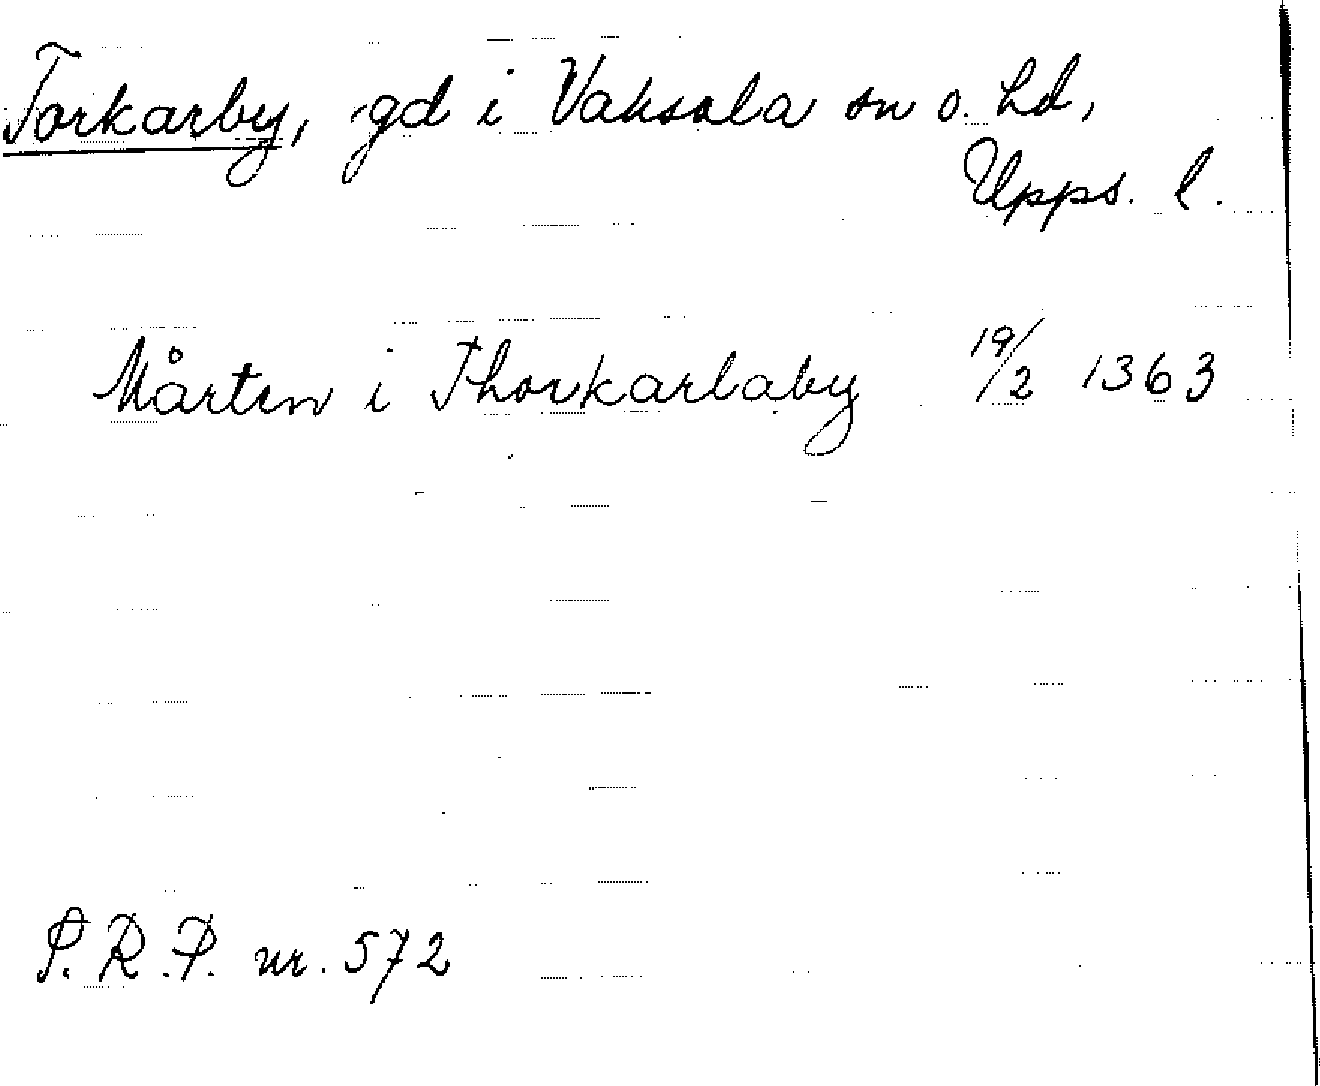 Torkarby, gd i Vaksala sn o. hd,
Upps. l.
Mårten i Thorkarlaby 19/2 1363
S.R.P. nr. 572